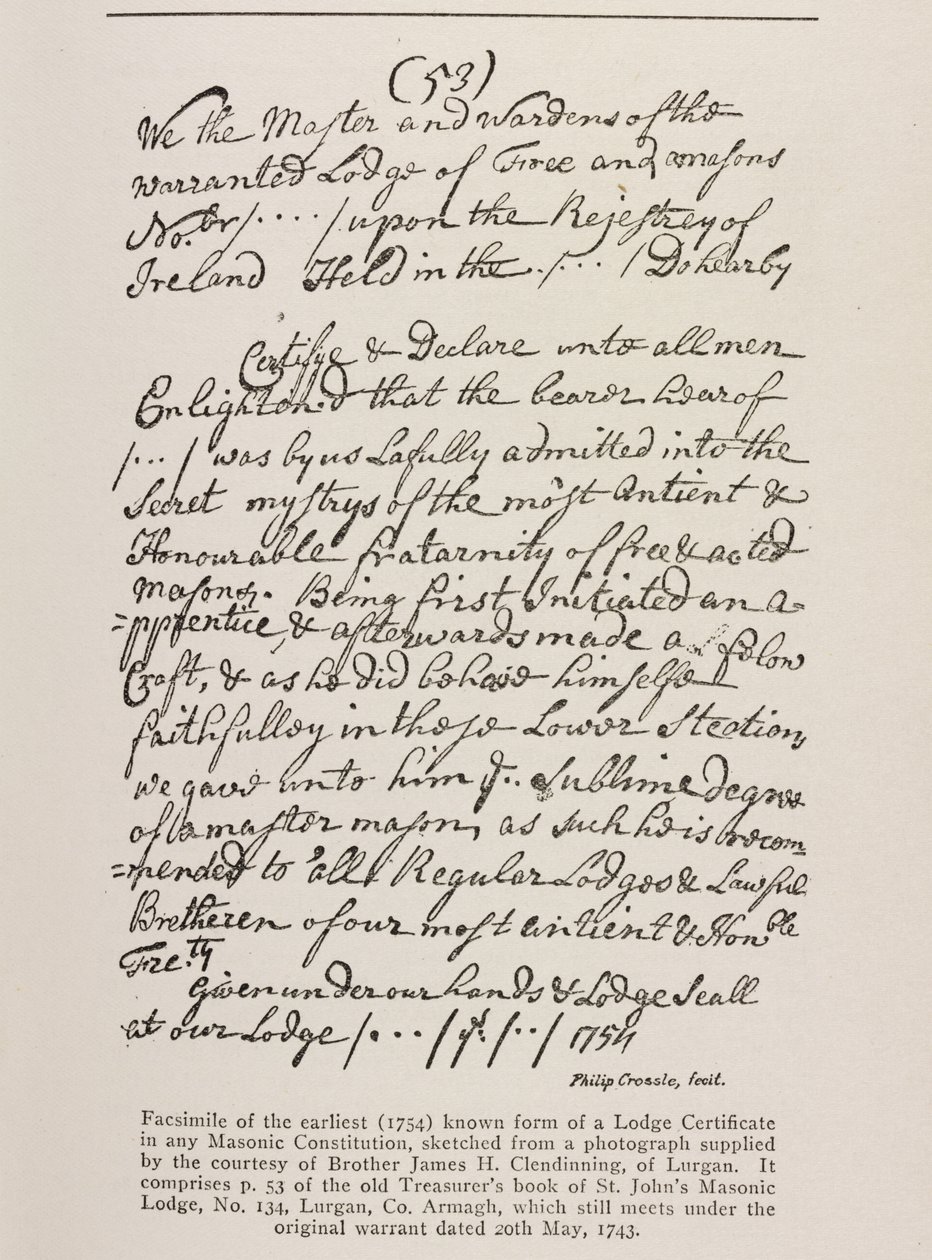 (53)
We the Master and Wardens of the
warranted Lodge of Free and amasons
No.br/. . . . / upon the Rejestrey of
Ireland Held in the ./. . . / Do hearby
Certifye & Declare unto all men
Enlighton.d that the bearer hearof
/. . . / was by us Lafully admitted into the
Secret mystrys of the most Antient &
Honourable frataranity of free & acted
masons. Being first Initiated an a-
=pprentice, & afterwards made a felow
Craft, & as he did behave himselfe
faithfulley in these Lower Stections
we gave unto him ye.. Sublime degree
of a master mason, as such he is recom
=mended to all Regular Lodges & Lawful
Bretheren of our most antient & Honble
Fre.ty
Given under our hands & Lodge Seall
at our Lodge /. . . / ye: /. . / 1754
Philip Crossle, fecit.
Facsimile of the earliest (1754) known form of a Lodge Certificate
in any Masonic Constitution, sketched from a photograph supplied
by the courtesy of Brother James H. Clendinning, of Lurgan. It
comprises p. 53 of the old Treasurer's book of St. John's Masonic
Lodge, No. 134, Lurgan, Co. Armagh, which still meets under the
original warrant dated 20th May, 1743.